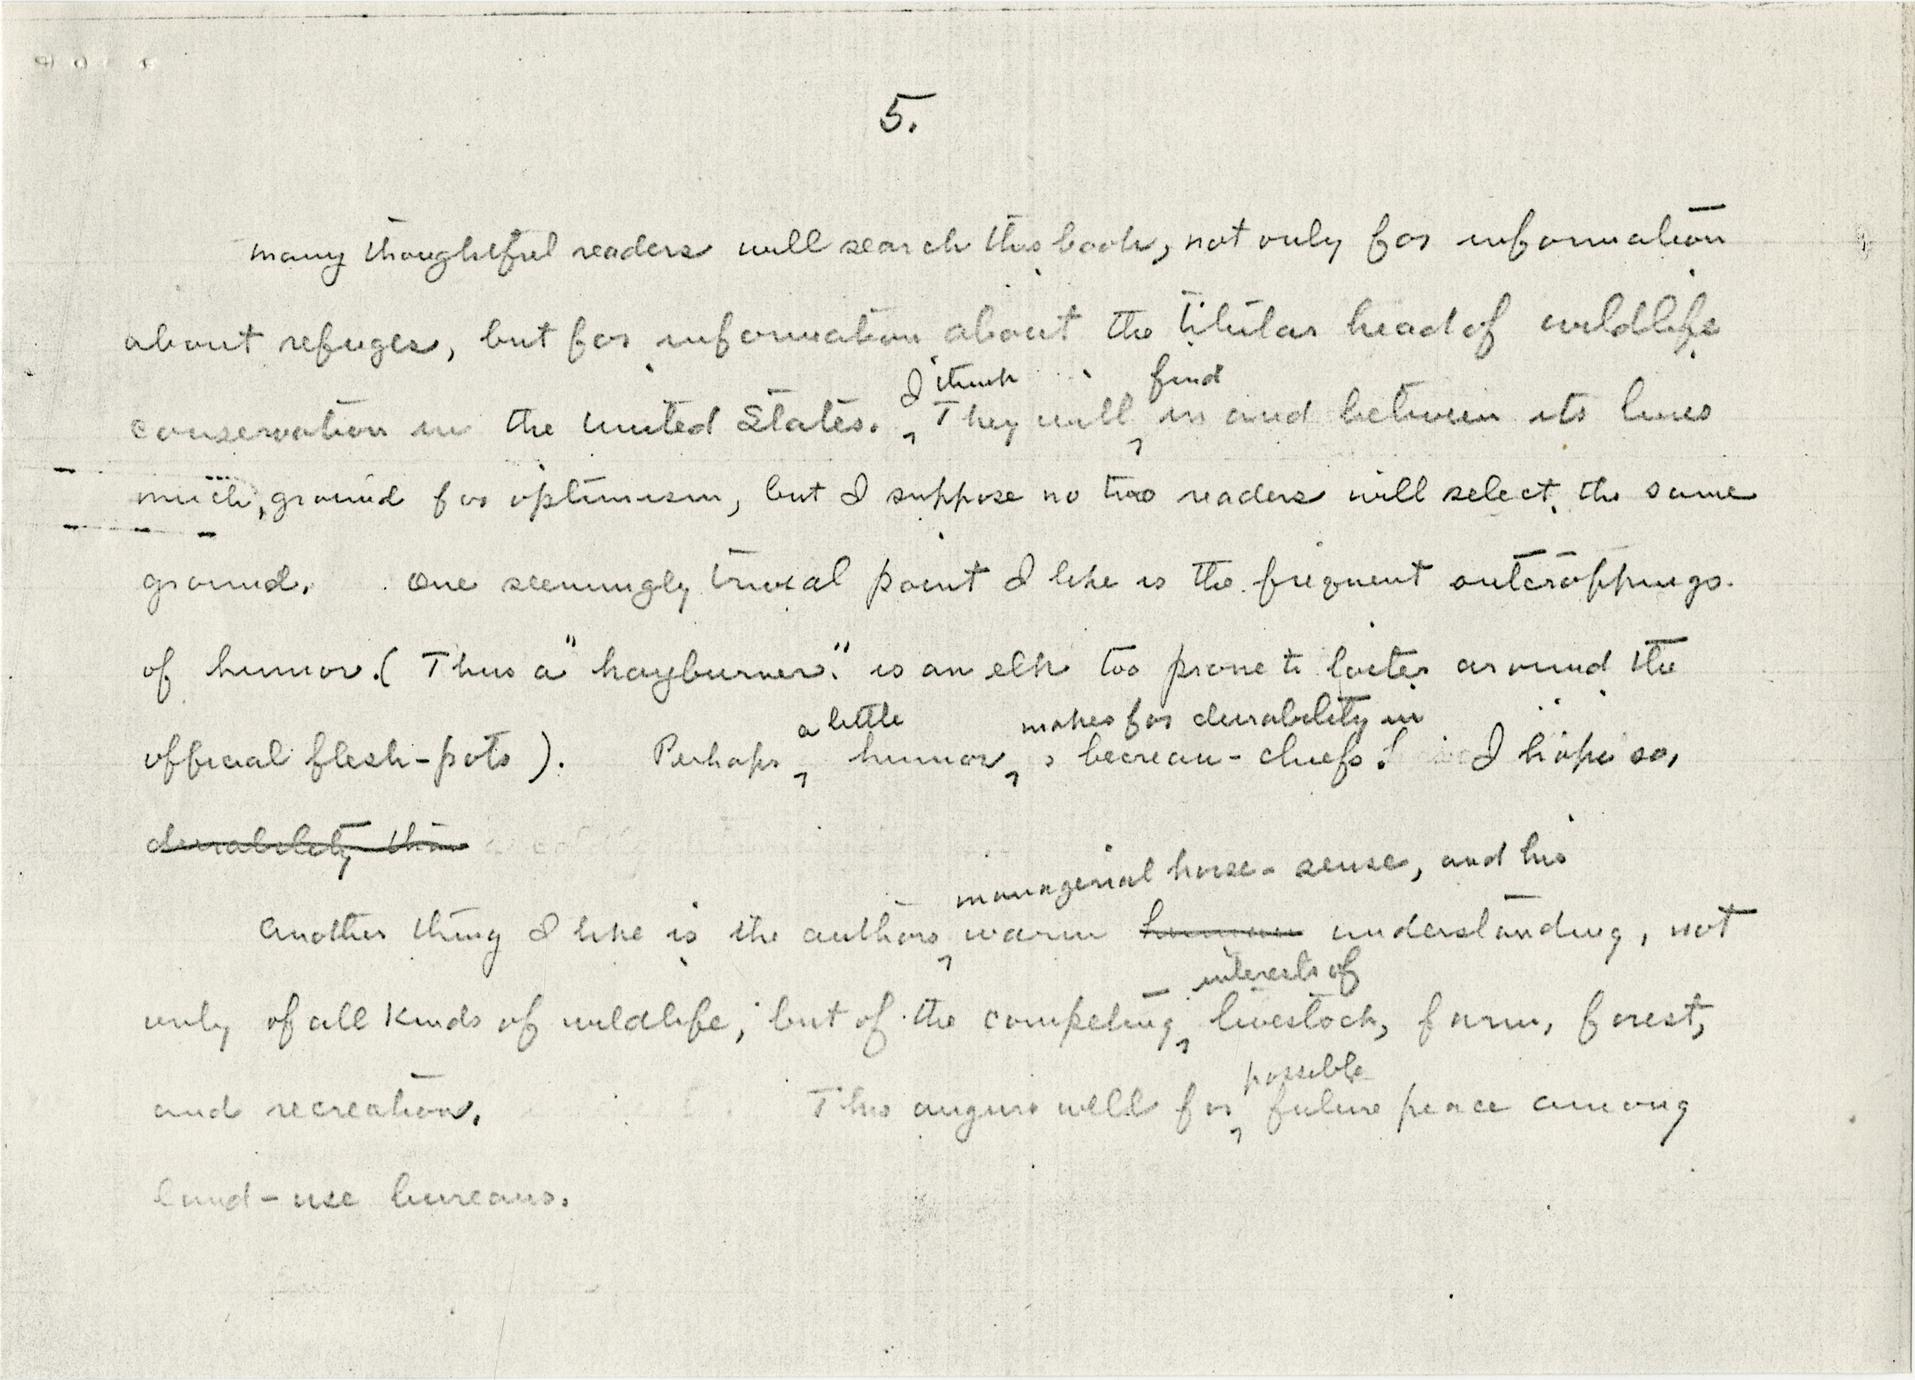 5.
Many thoughtful readers will search this book, not only for information
about refuges, but for information about the titular head of wildlife
I think find
conservation in the United States. They will in and between its lines
much ground for optimism, but I suppose no two readers will select the same
ground. One seemingly trivial point I like is the frequent outcroppings
of humor. (Thus a "hayburner" is an elk too prone to loiter around the
a little makes for durability in
official flesh-pots). Perhaps humor bureau-chiefs! I hope so,
durability than
managerial horse-sense, and his
Another thing I like is the authors warm human understanding, not
interests of
only of all kinds of wildlife, but of the competing livestock, farm, forest,
possible
and recreation. This augurs well for future peace among
land-use bureaus.